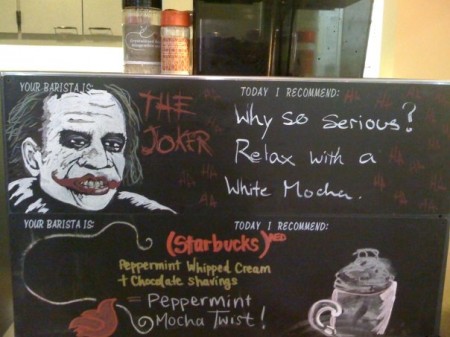 YOUR BARISTA IS:
THE
JOKER
TODAY I RECOMMEND:
Why so serious?
Relax with a
White Mocha.
HA HA HA HA HA HA
YOUR BARISTA IS:
TODAY I RECOMMEND:
(Starbucks)RED
Peppermint Whipped Cream
+ Chocolate Shavings
= Peppermint
Mocha Twist!